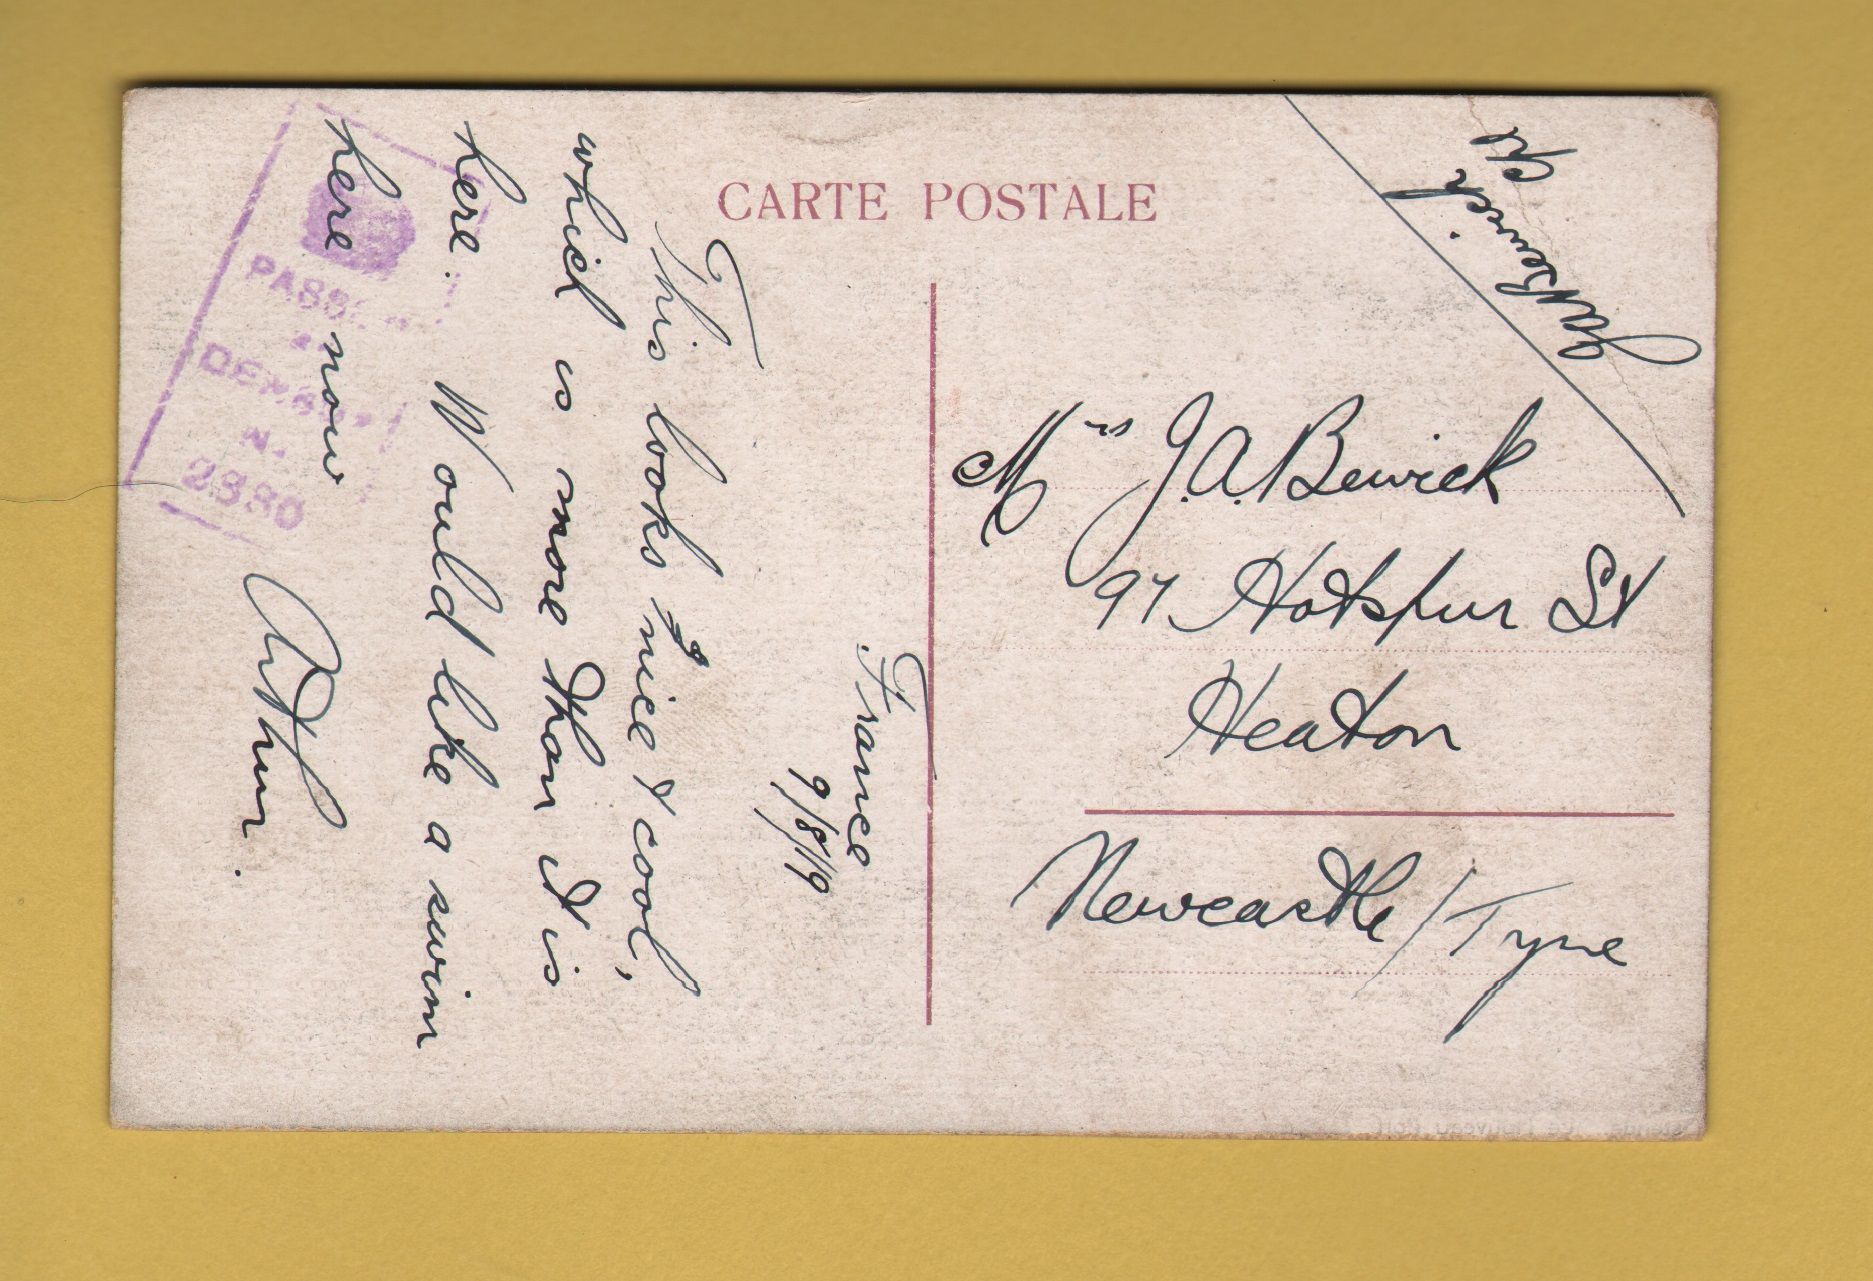 CARTE POSTALE
France
9/8/19
This looks nice & cool,
which is more than it is
here. Would like a swim
here now
Arthur.
PASSED
2880
JABewick
Cpl
Mrs J.A. Bewick
97 Hotspur St
Heaton
Newcastle/Tyne